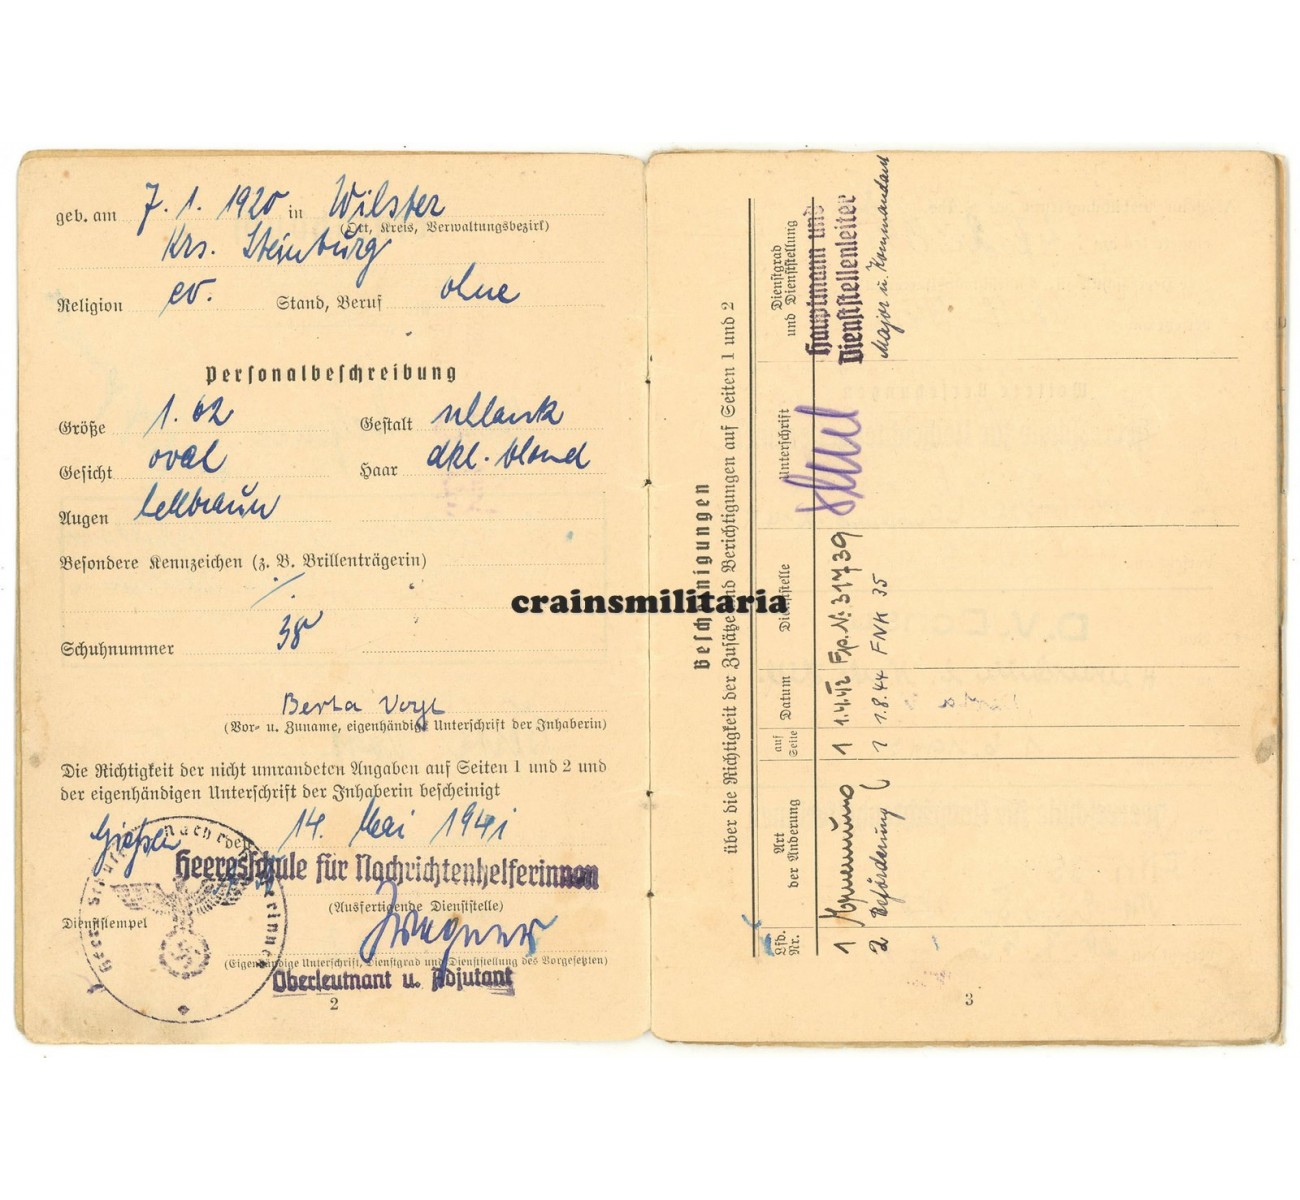 geb. am 7. 1. 1920 in Wilster
(Ort, Kreis, Verwaltungsbezirk)
Krs. Steinburg
Religion ev. Stand, Beruf ohne
Personalbeschreibung
Größe 1.62 Gestalt schlank
Gesicht oval Haar dkl. blond
Augen hellbraun
Besondere Kennzeichen (z. B. Brillenträgerin)
/
Schuhnummer 38
Berta Vogt
(Vor- u. Zuname, eigenhändige Unterschrift der Inhaberin)
Die Richtigkeit der nicht umrandeten Angaben auf Seiten 1 und 2 und
der eigenhändigen Unterschrift der Inhaberin bescheinigt
Gießen den 14. Mai 1941
Heeresschule für Nachrichtenhelferinnen
(Ausfertigende Dienststelle)
Dienststempel
(Eigenhändige Unterschrift, Dienstgrad und Dienststellung des Vorgesetzten)
Oberleutnant u. Adjutant
2
crainsmilitaria
Bescheinigungen
über die Richtigkeit der Zusätze und Berichtigungen auf Seiten 1 und 2
Lfd. Nr. Art der Änderung auf Seite Datum Dienststelle Unterschrift Dienstgrad und Dienststellung
1 Ernennung 1 1.4.42 Fp. Nr. 31739 Hauptmann und Dienststellenleiter
2 Beförderung 1 1.8.44 FNK 35 Major u. Kommandant
3